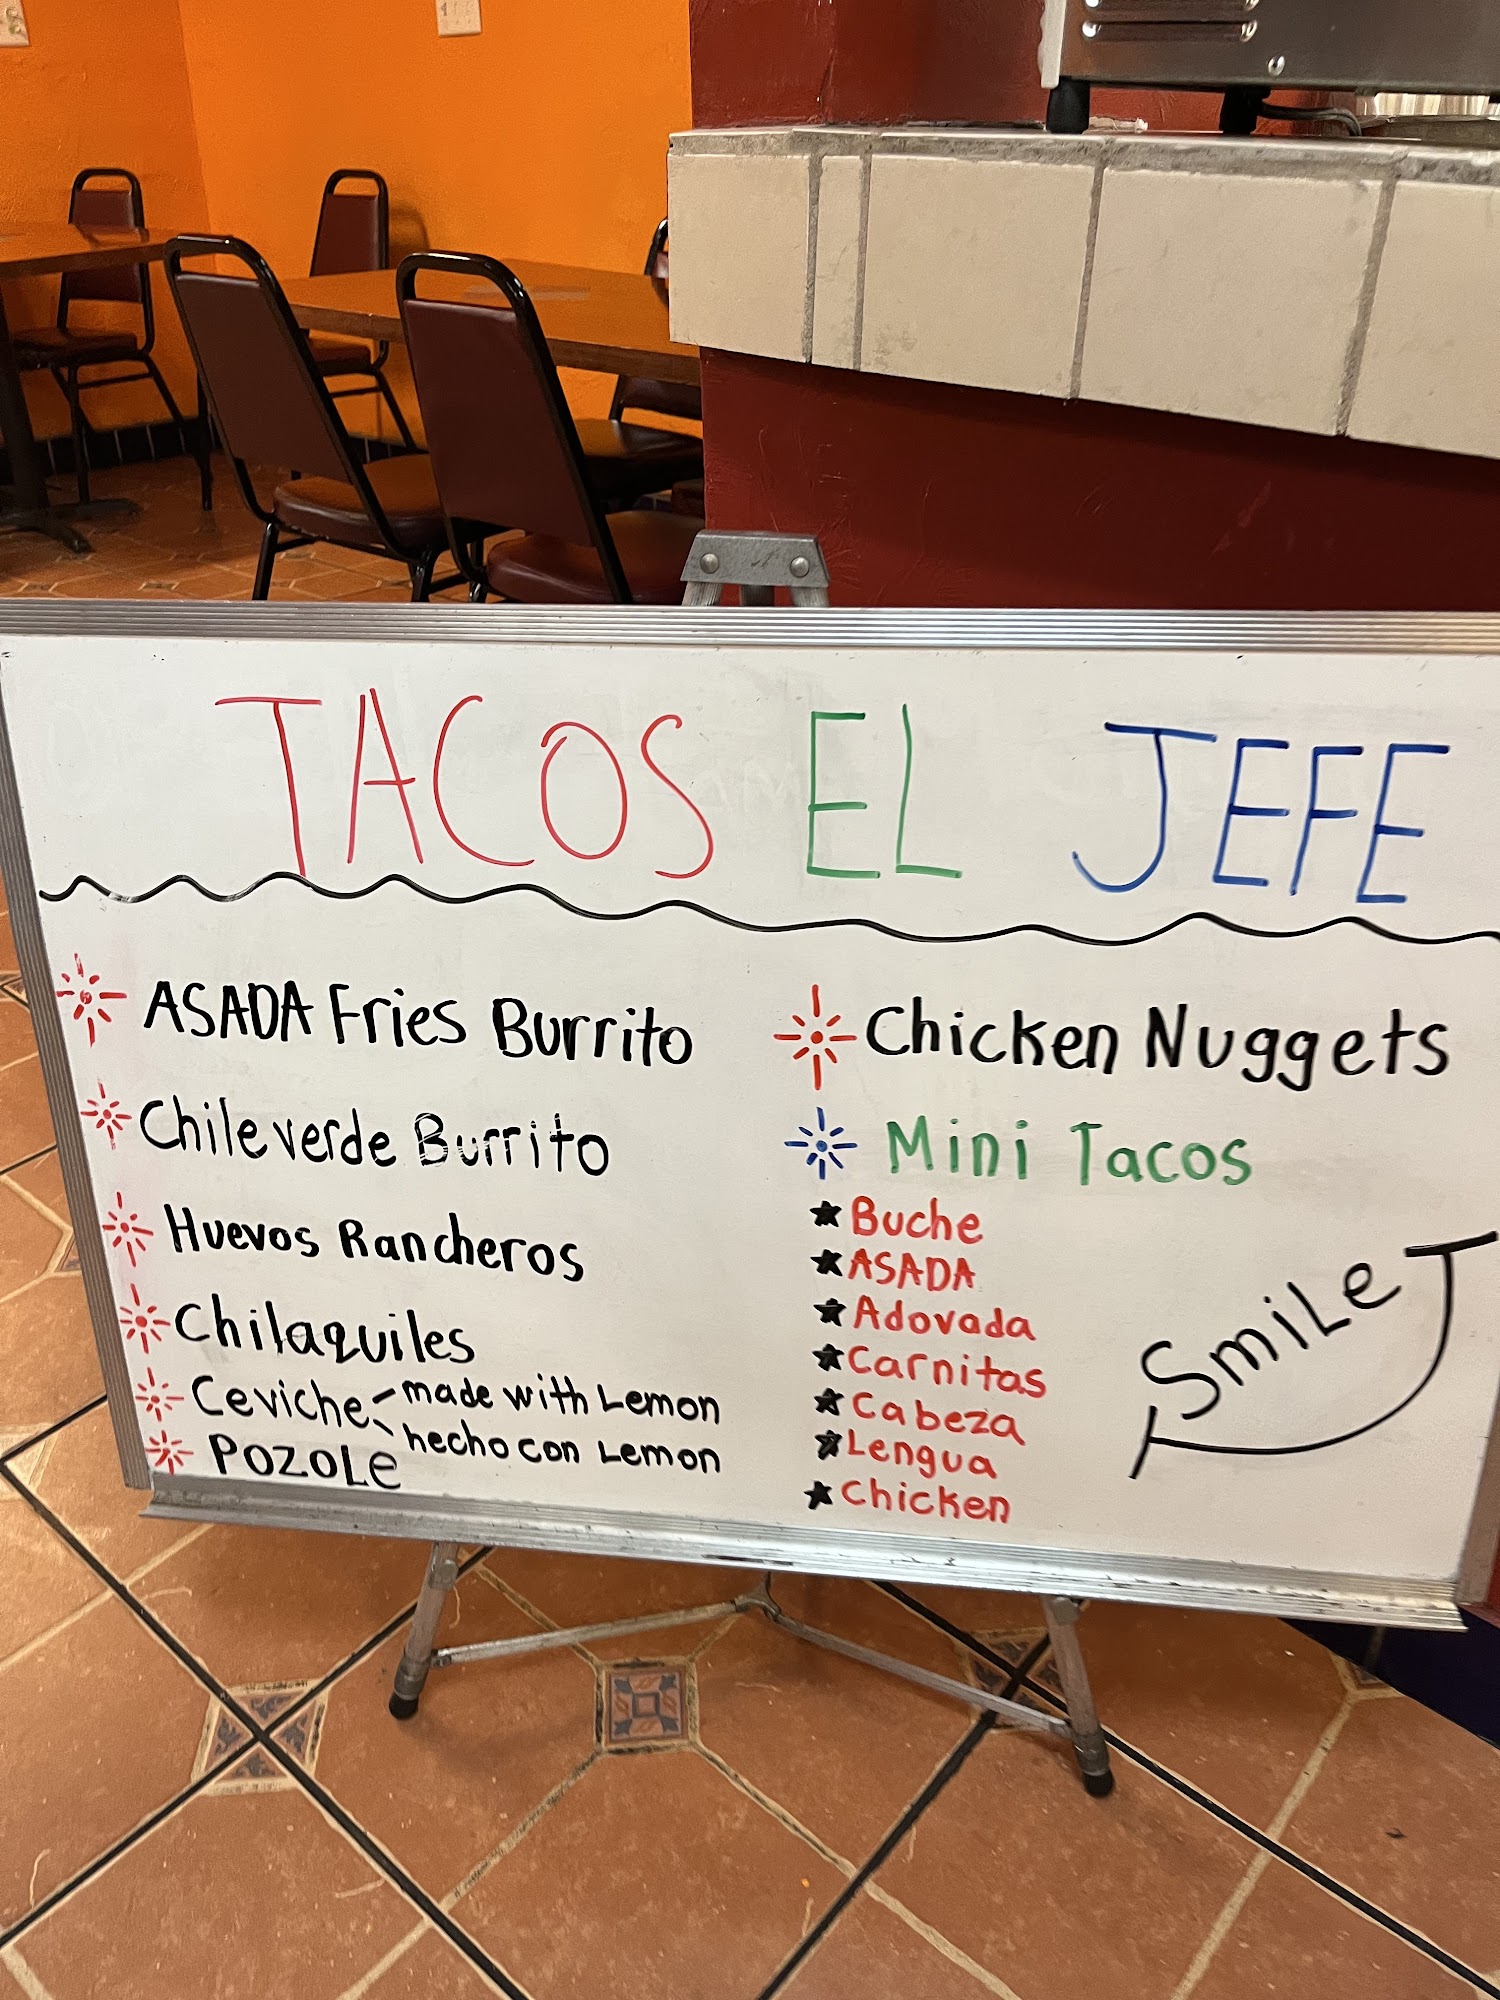 TACOS EL JEFE
ASADA Fries Burrito
Chile verde Burrito
Huevos Rancheros
Chilaquiles
Ceviche made with Lemon
hecho con Lemon
POZOLe
Chicken Nuggets
Mini Tacos
Buche
ASADA
Adovada
Carnitas
Cabeza
Lengua
Chicken
SmiLe